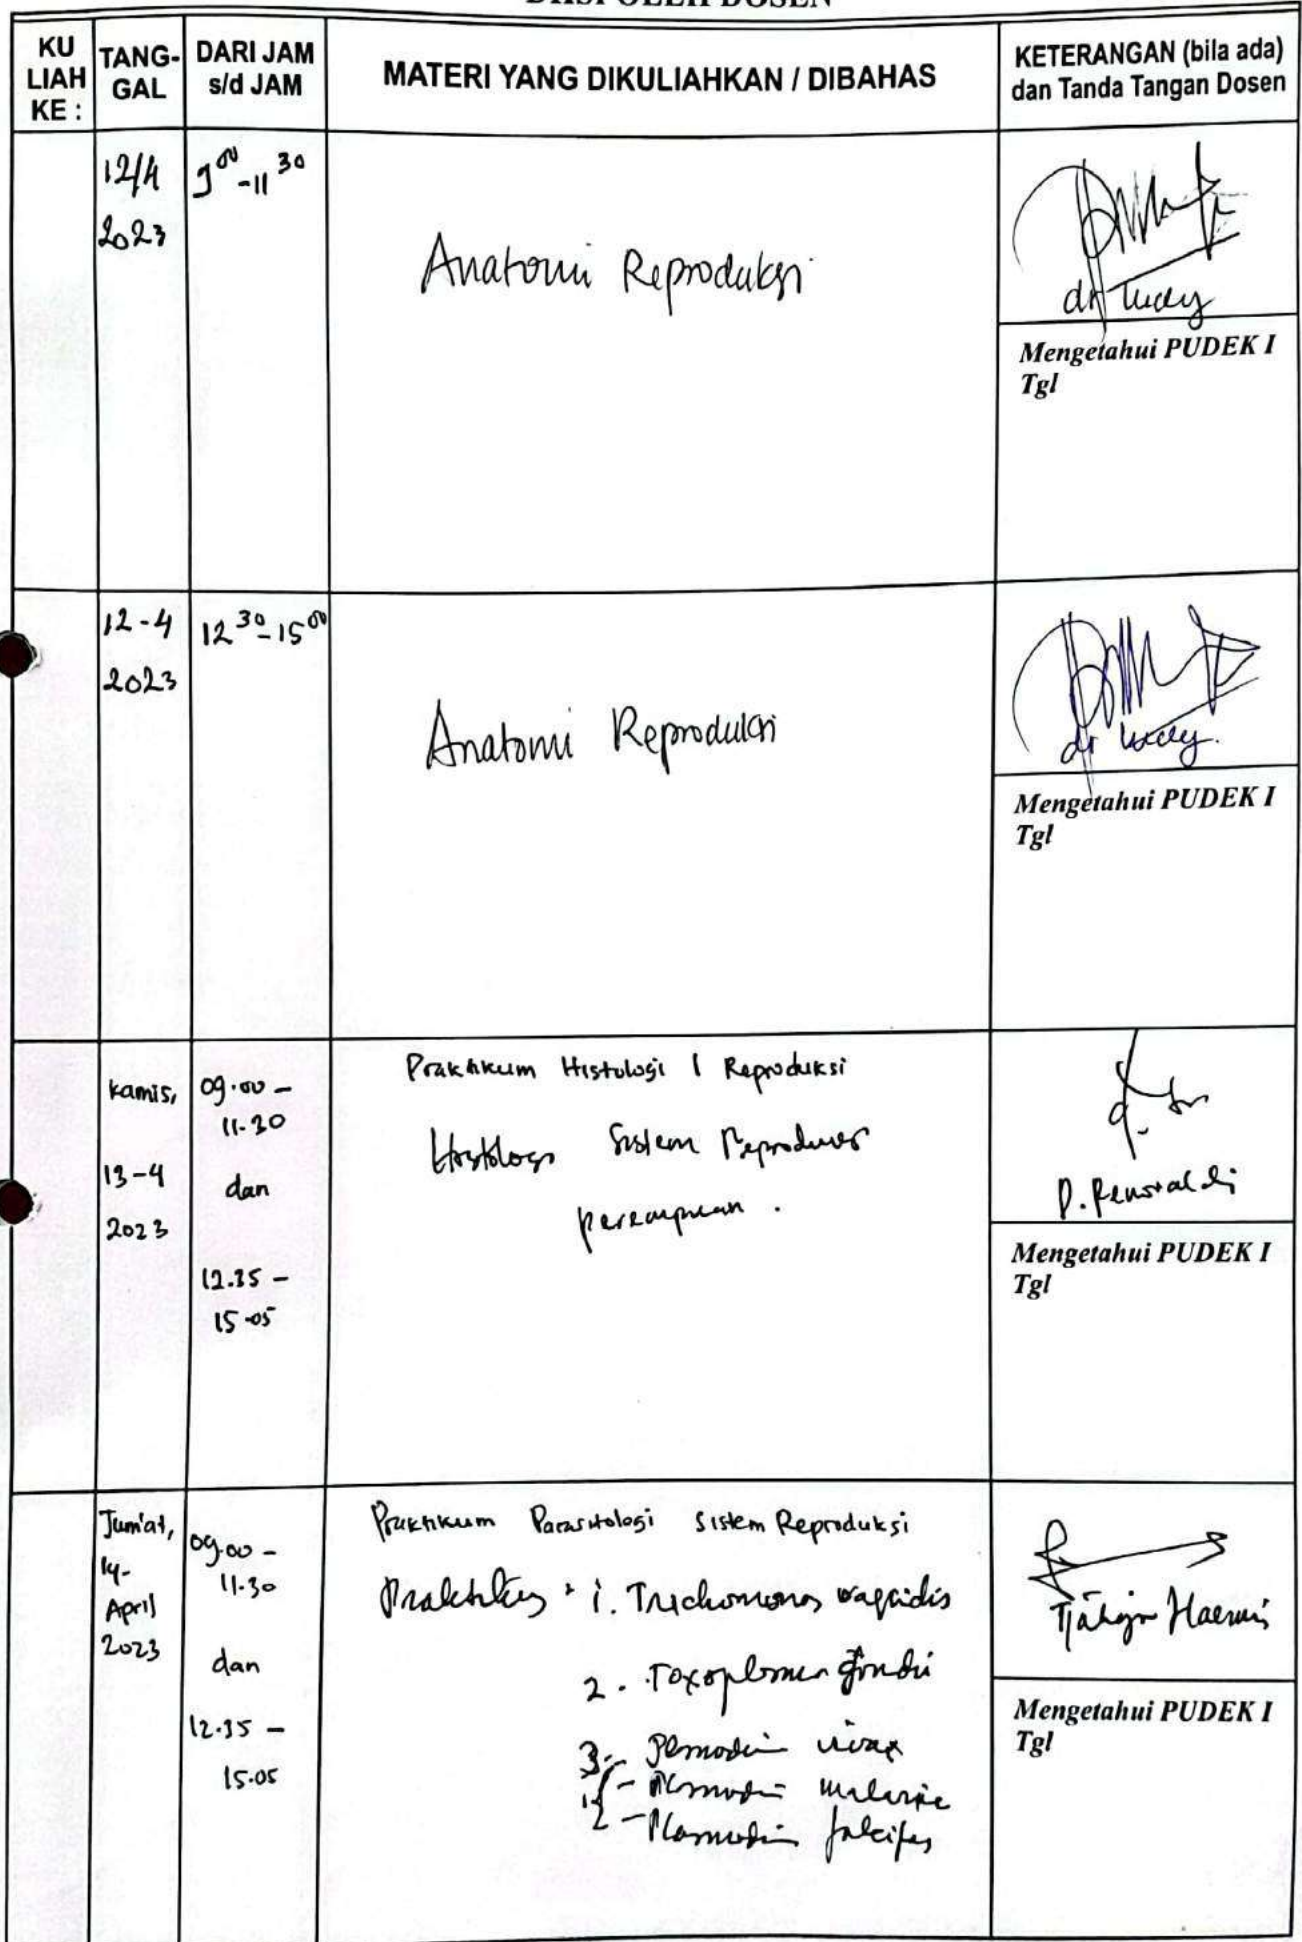 DIISI OLEH DOSEN
KU LIAH KE :
TANG-GAL
DARI JAM s/d JAM
MATERI YANG DIKULIAHKAN / DIBAHAS
KETERANGAN (bila ada) dan Tanda Tangan Dosen
12/4
2023
9 00 - 11 30
Anatomi Reproduksi
dr
Mengetahui PUDEK I
Tgl
12-4
2023
12 30 - 15 00
Anatomi Reproduksi
dr
Mengetahui PUDEK I
Tgl
Kamis,
13-4
2023
09.00 -
11.30
dan
12.35 -
15.05
Praktikum Histologi 1 Reproduksi
Histologi Sistem Reproduksi
perempuan.
Mengetahui PUDEK I
Tgl
Jum'at,
14-
April
2023
09.00 -
11.30
dan
12.35 -
15.05
Praktikum Parasitologi Sistem Reproduksi
1. Trichomonas vaginalis
2. Toxoplasma gondii
3. vivax
- malariae
- Plasmodium
Mengetahui PUDEK I
Tgl